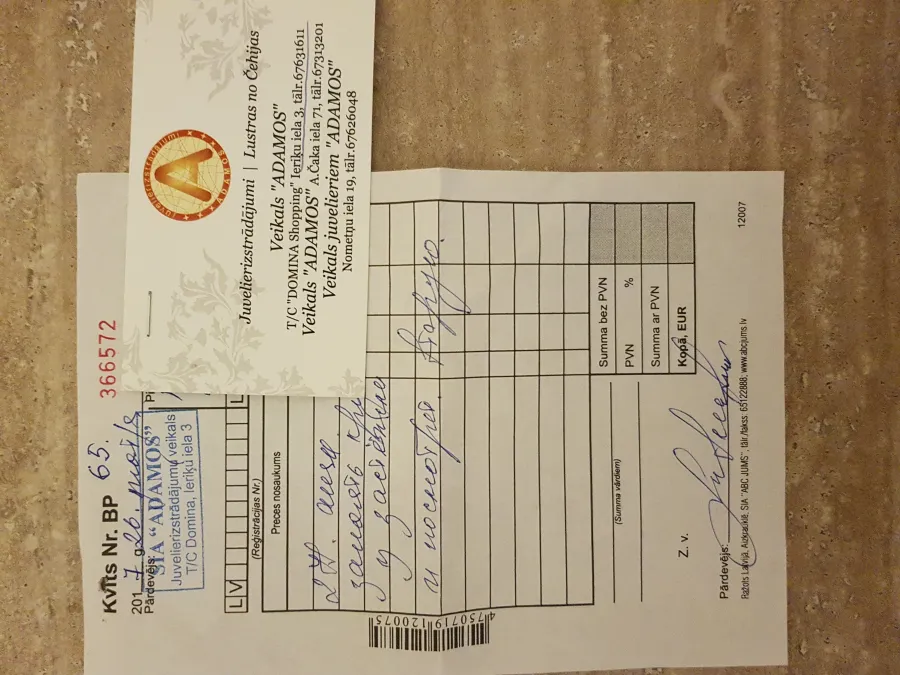 Juvelierizstrādājumi | Lustras no Čehijas
Veikals "ADAMOS"
T/C "DOMINA Shopping" Ieriķu iela 3, tālr.67631611
Veikals "ADAMOS" A.Čaka iela 71, tālr.67313201
Veikals juvelieriem "ADAMOS"
Nometņu iela 19, tālr.67626048
Juvelierizstrādājumi
ADAMOS
A
366572
Kvīts Nr. BP 65.
2017. g. 26.
Pārdevējs:
SIA "ADAMOS"
Juvelierizstrādājumu veikals
T/C Domina, Ieriķu iela 3
LV
(Reģistrācijas Nr.)
Preces nosaukums
и посмотрел
4750719120075
Summa bez PVN
PVN %
Summa ar PVN
Kopā, EUR
(Summa vārdiem)
Z. v.
Pārdevējs:
Ražots Latvijā, Aizkrauklē, SIA "ABC JUMS", tālr./fakss: 65122888; www.abcjums.lv
12007